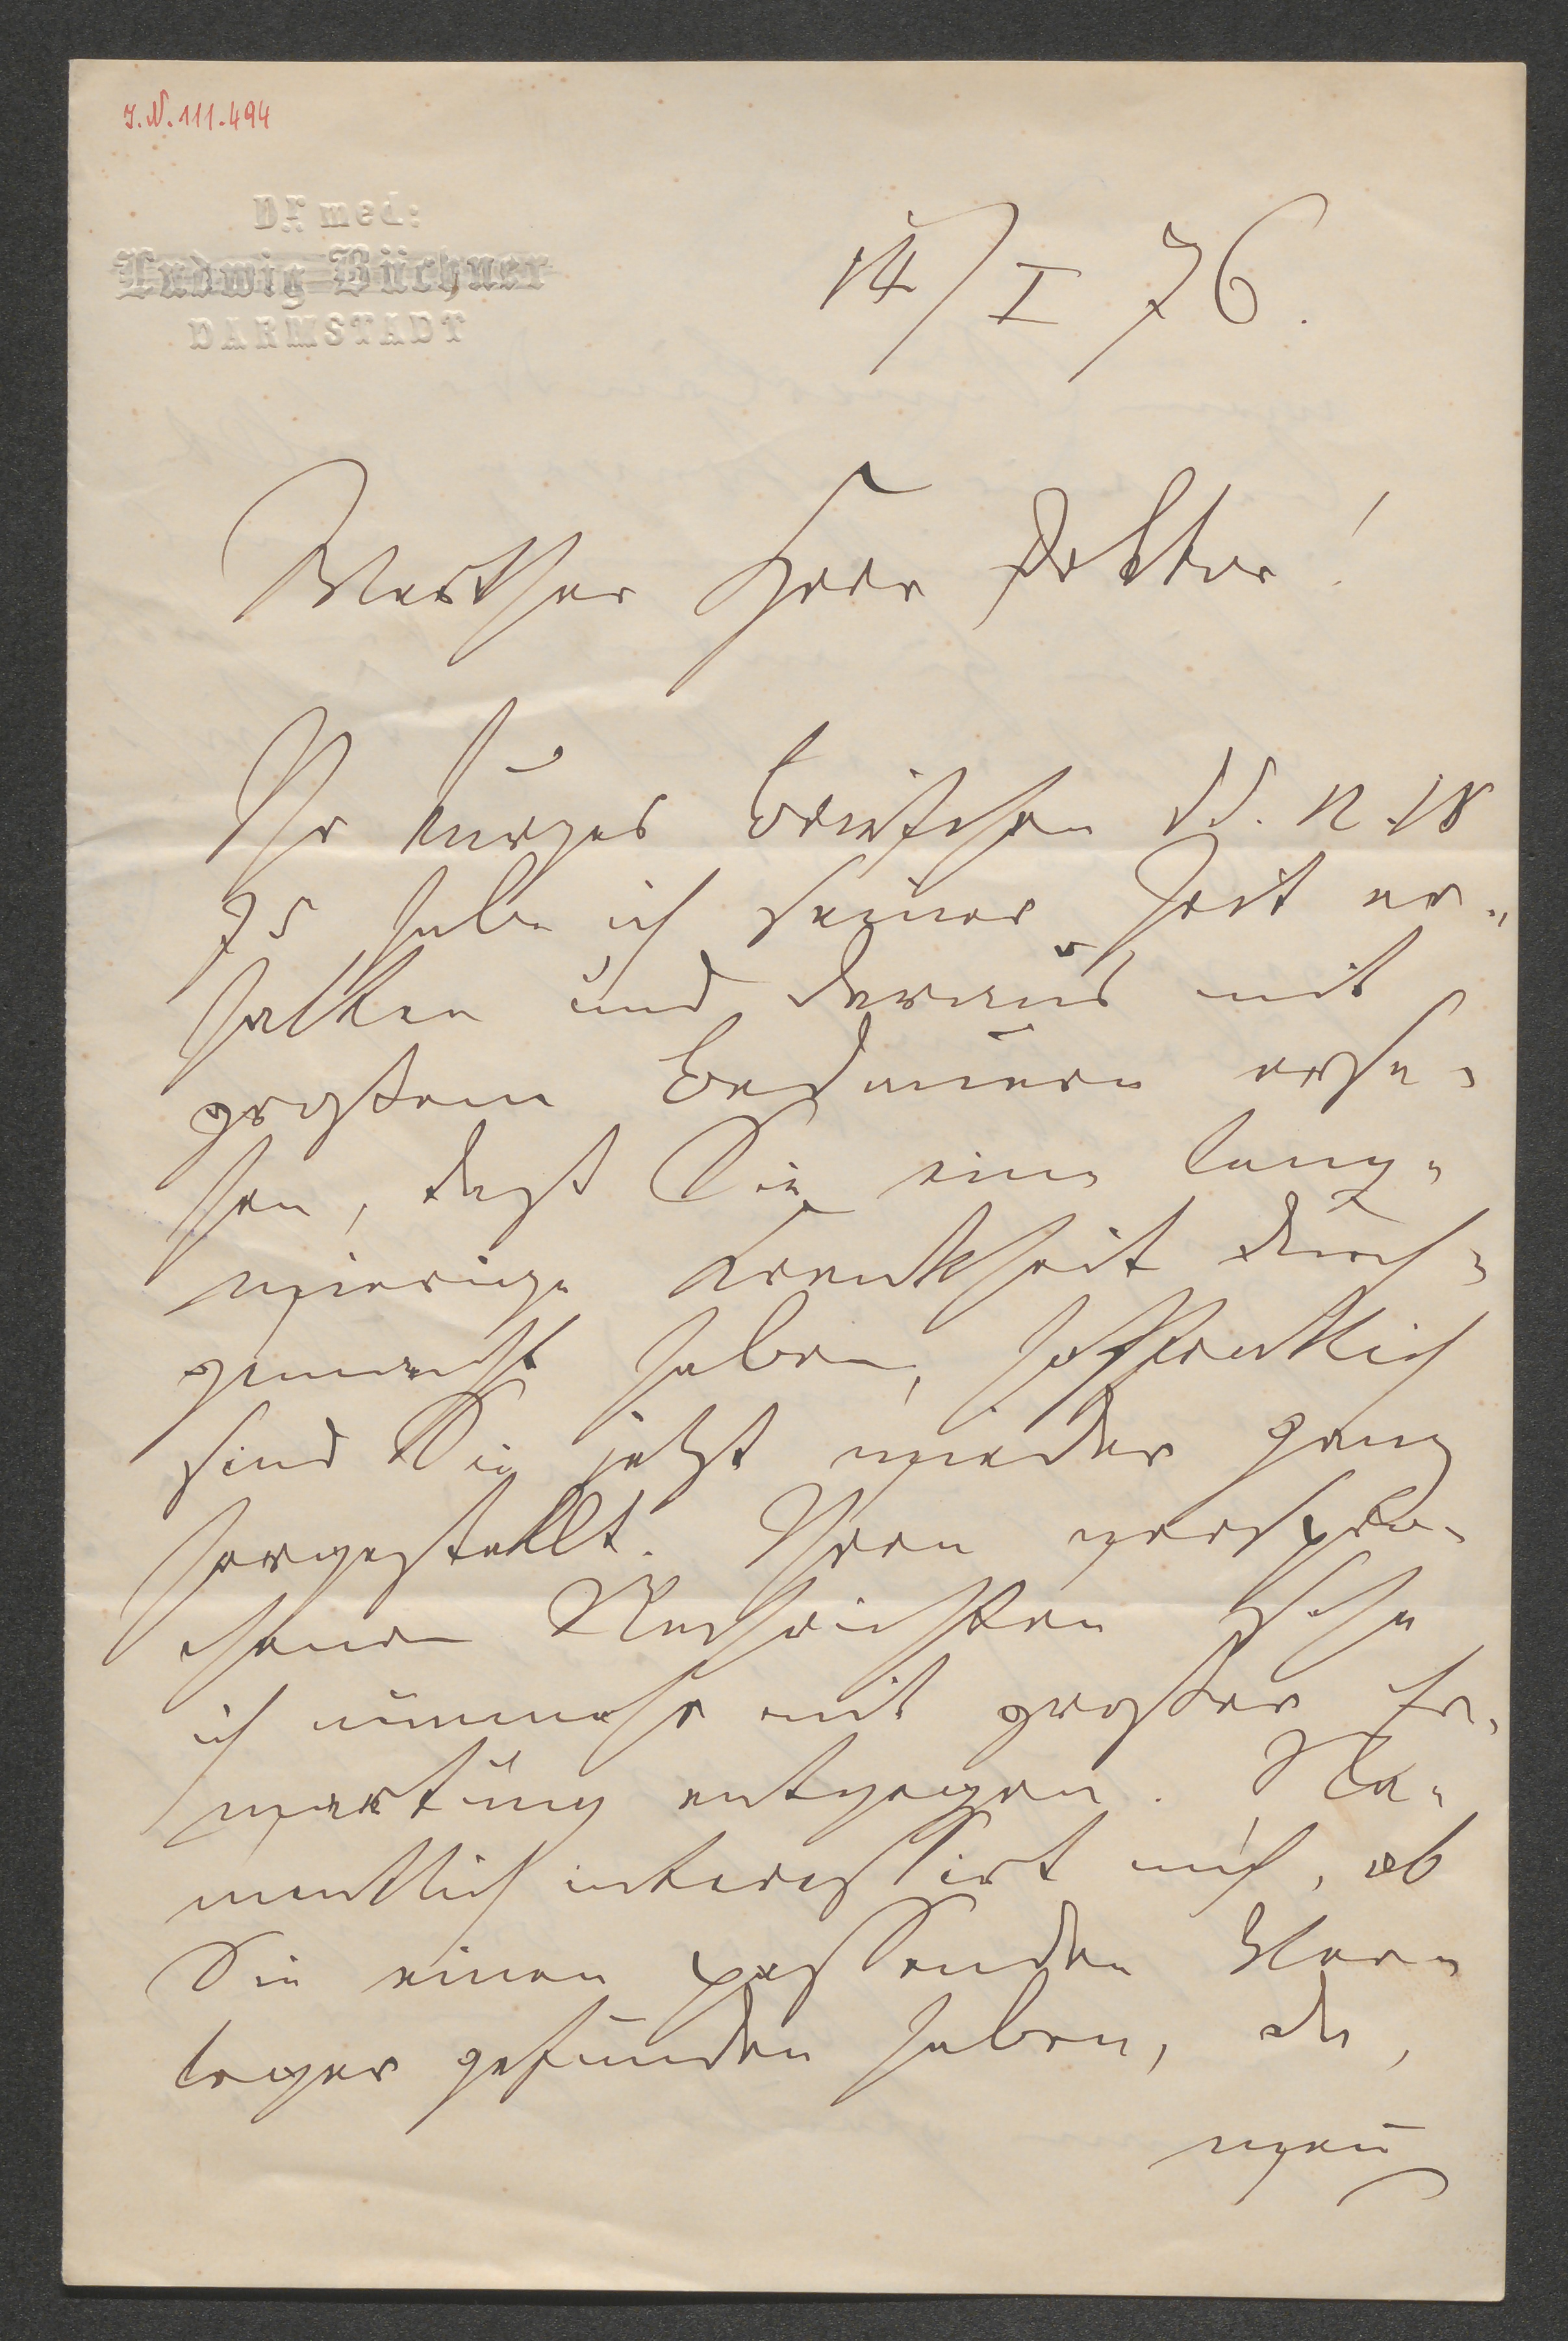 J.N. 111.494
Dr med:
Ludwig Büchner
DARMSTADT
14/I 76.
Werther Herr Doktor!
Ihr kurzes Briefchen dd. 12. 18
75 habe ich seiner Zeit er-
halten und daraus mit
großem Bedauern erse-
hen, daß Sie eine lang-
wierige Krankheit durch-
gemacht haben, hoffentlich
sind Sie jetzt wieder ganz
hergestellt. Ihren verspro-
chenen Nachrichten sehe
ich nunmehr mit großer Er-
wartung entgegen. Na-
mentlich interessirt mich, ob
Sie einen passenden Ver-
leger gefunden haben, da,
wenn